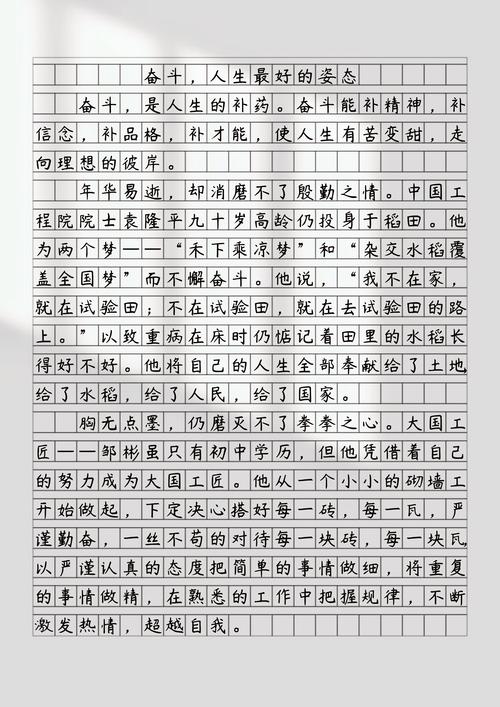 奋斗，人生最好的姿态
奋斗，是人生的补药。奋斗能补精神，补
信念，补品格，补才能，使人生有苦变甜，走
向理想的彼岸。
年华易逝，却消磨不了殷勤之情。中国工
程院院士袁隆平九十岁高龄仍投身于稻田。他
为两个梦——“禾下乘凉梦”和“杂交水稻覆
盖全国梦”而不懈奋斗。他说，“我不在家，
就在试验田；不在试验田，就在去试验田的路
上。”以致重病在床时仍惦记着田里的水稻长
得好不好。他将自己的人生全部奉献给了土地，
给了水稻，给了人民，给了国家。
胸无点墨，仍磨灭不了拳拳之心。大国工
匠——邹彬虽只有初中学历，但他凭借着自己
的努力成为大国工匠。他从一个小小的砌墙工
开始做起，下定决心搭好每一砖，每一瓦，严
谨勤奋，一丝不苟的对待每一块砖，每一块瓦，
以严谨认真的态度把简单的事情做细，将重复
的事情做精，在熟悉的工作中把握规律，不断
激发热情，超越自我。